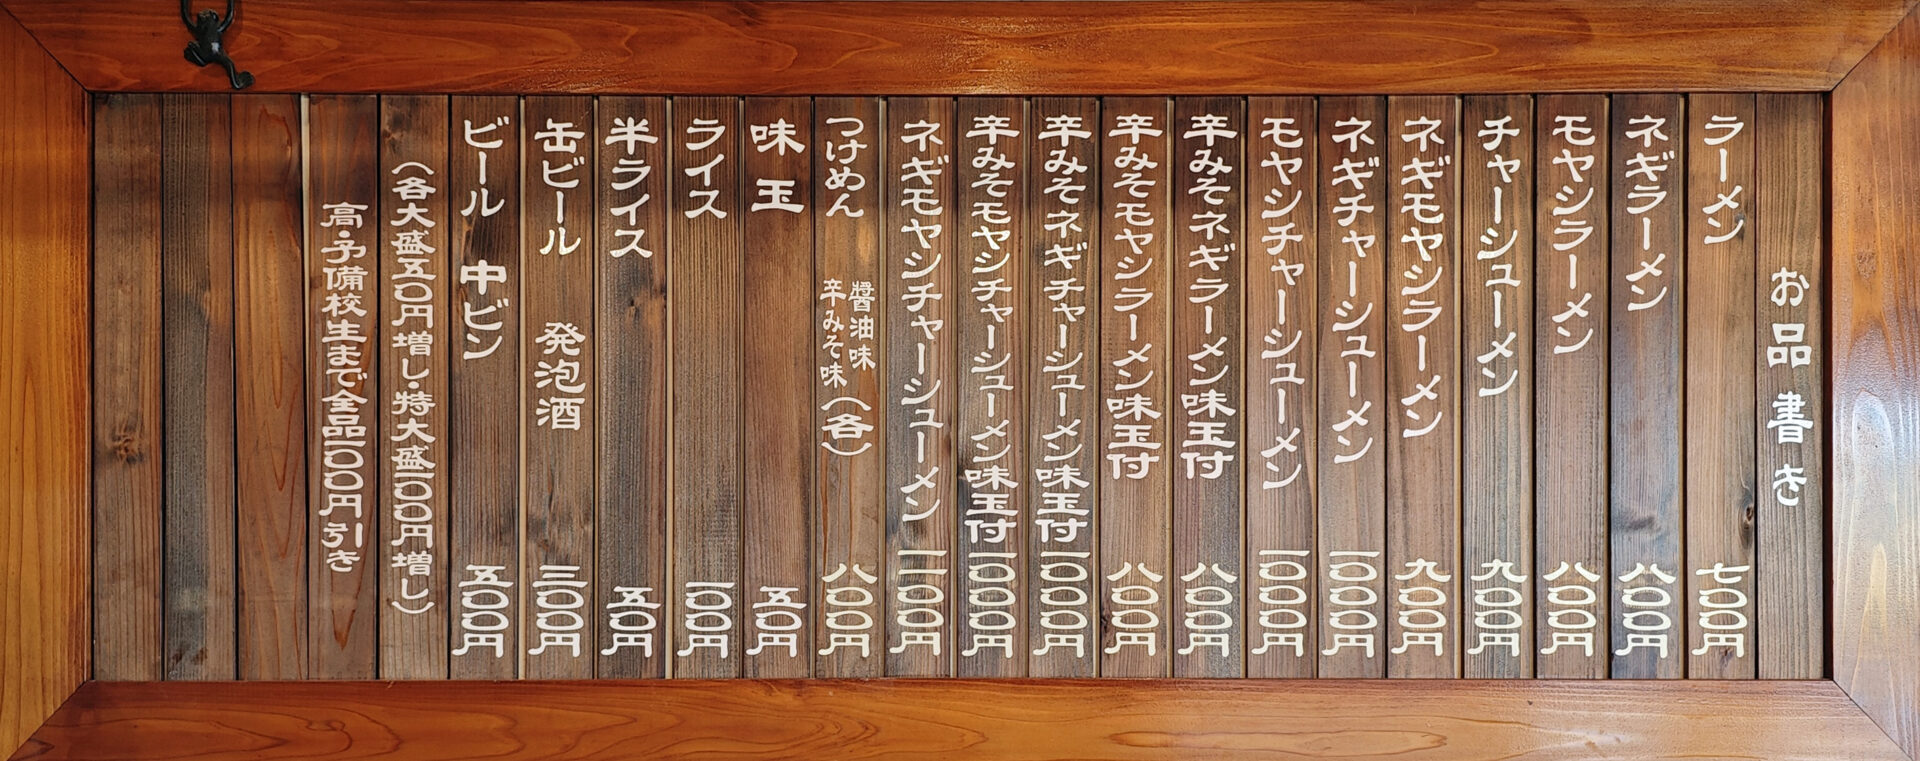 お品書き
ラーメン 七〇〇円
ネギラーメン 八〇〇円
モヤシラーメン 八〇〇円
チャーシューメン 九〇〇円
ネギモヤシラーメン 九〇〇円
ネギチャーシューメン 一〇〇〇円
モヤシチャーシューメン 一〇〇〇円
辛みそネギラーメン味玉付 八〇〇円
辛みそモヤシラーメン味玉付 八〇〇円
辛みそネギチャーシューメン味玉付 一〇〇〇円
辛みそモヤシチャーシューメン味玉付 一〇〇〇円
ネギモヤシチャーシューメン 一一〇〇円
つけめん 醤油味 辛みそ味(各) 八〇〇円
味玉 五〇円
ライス 一〇〇円
半ライス 五〇円
缶ビール 発泡酒 三〇〇円
ビール 中ビン 五〇〇円
(各大盛五〇円増し・特大盛一〇〇円増し)
高・予備校生まで全品一〇〇円引き